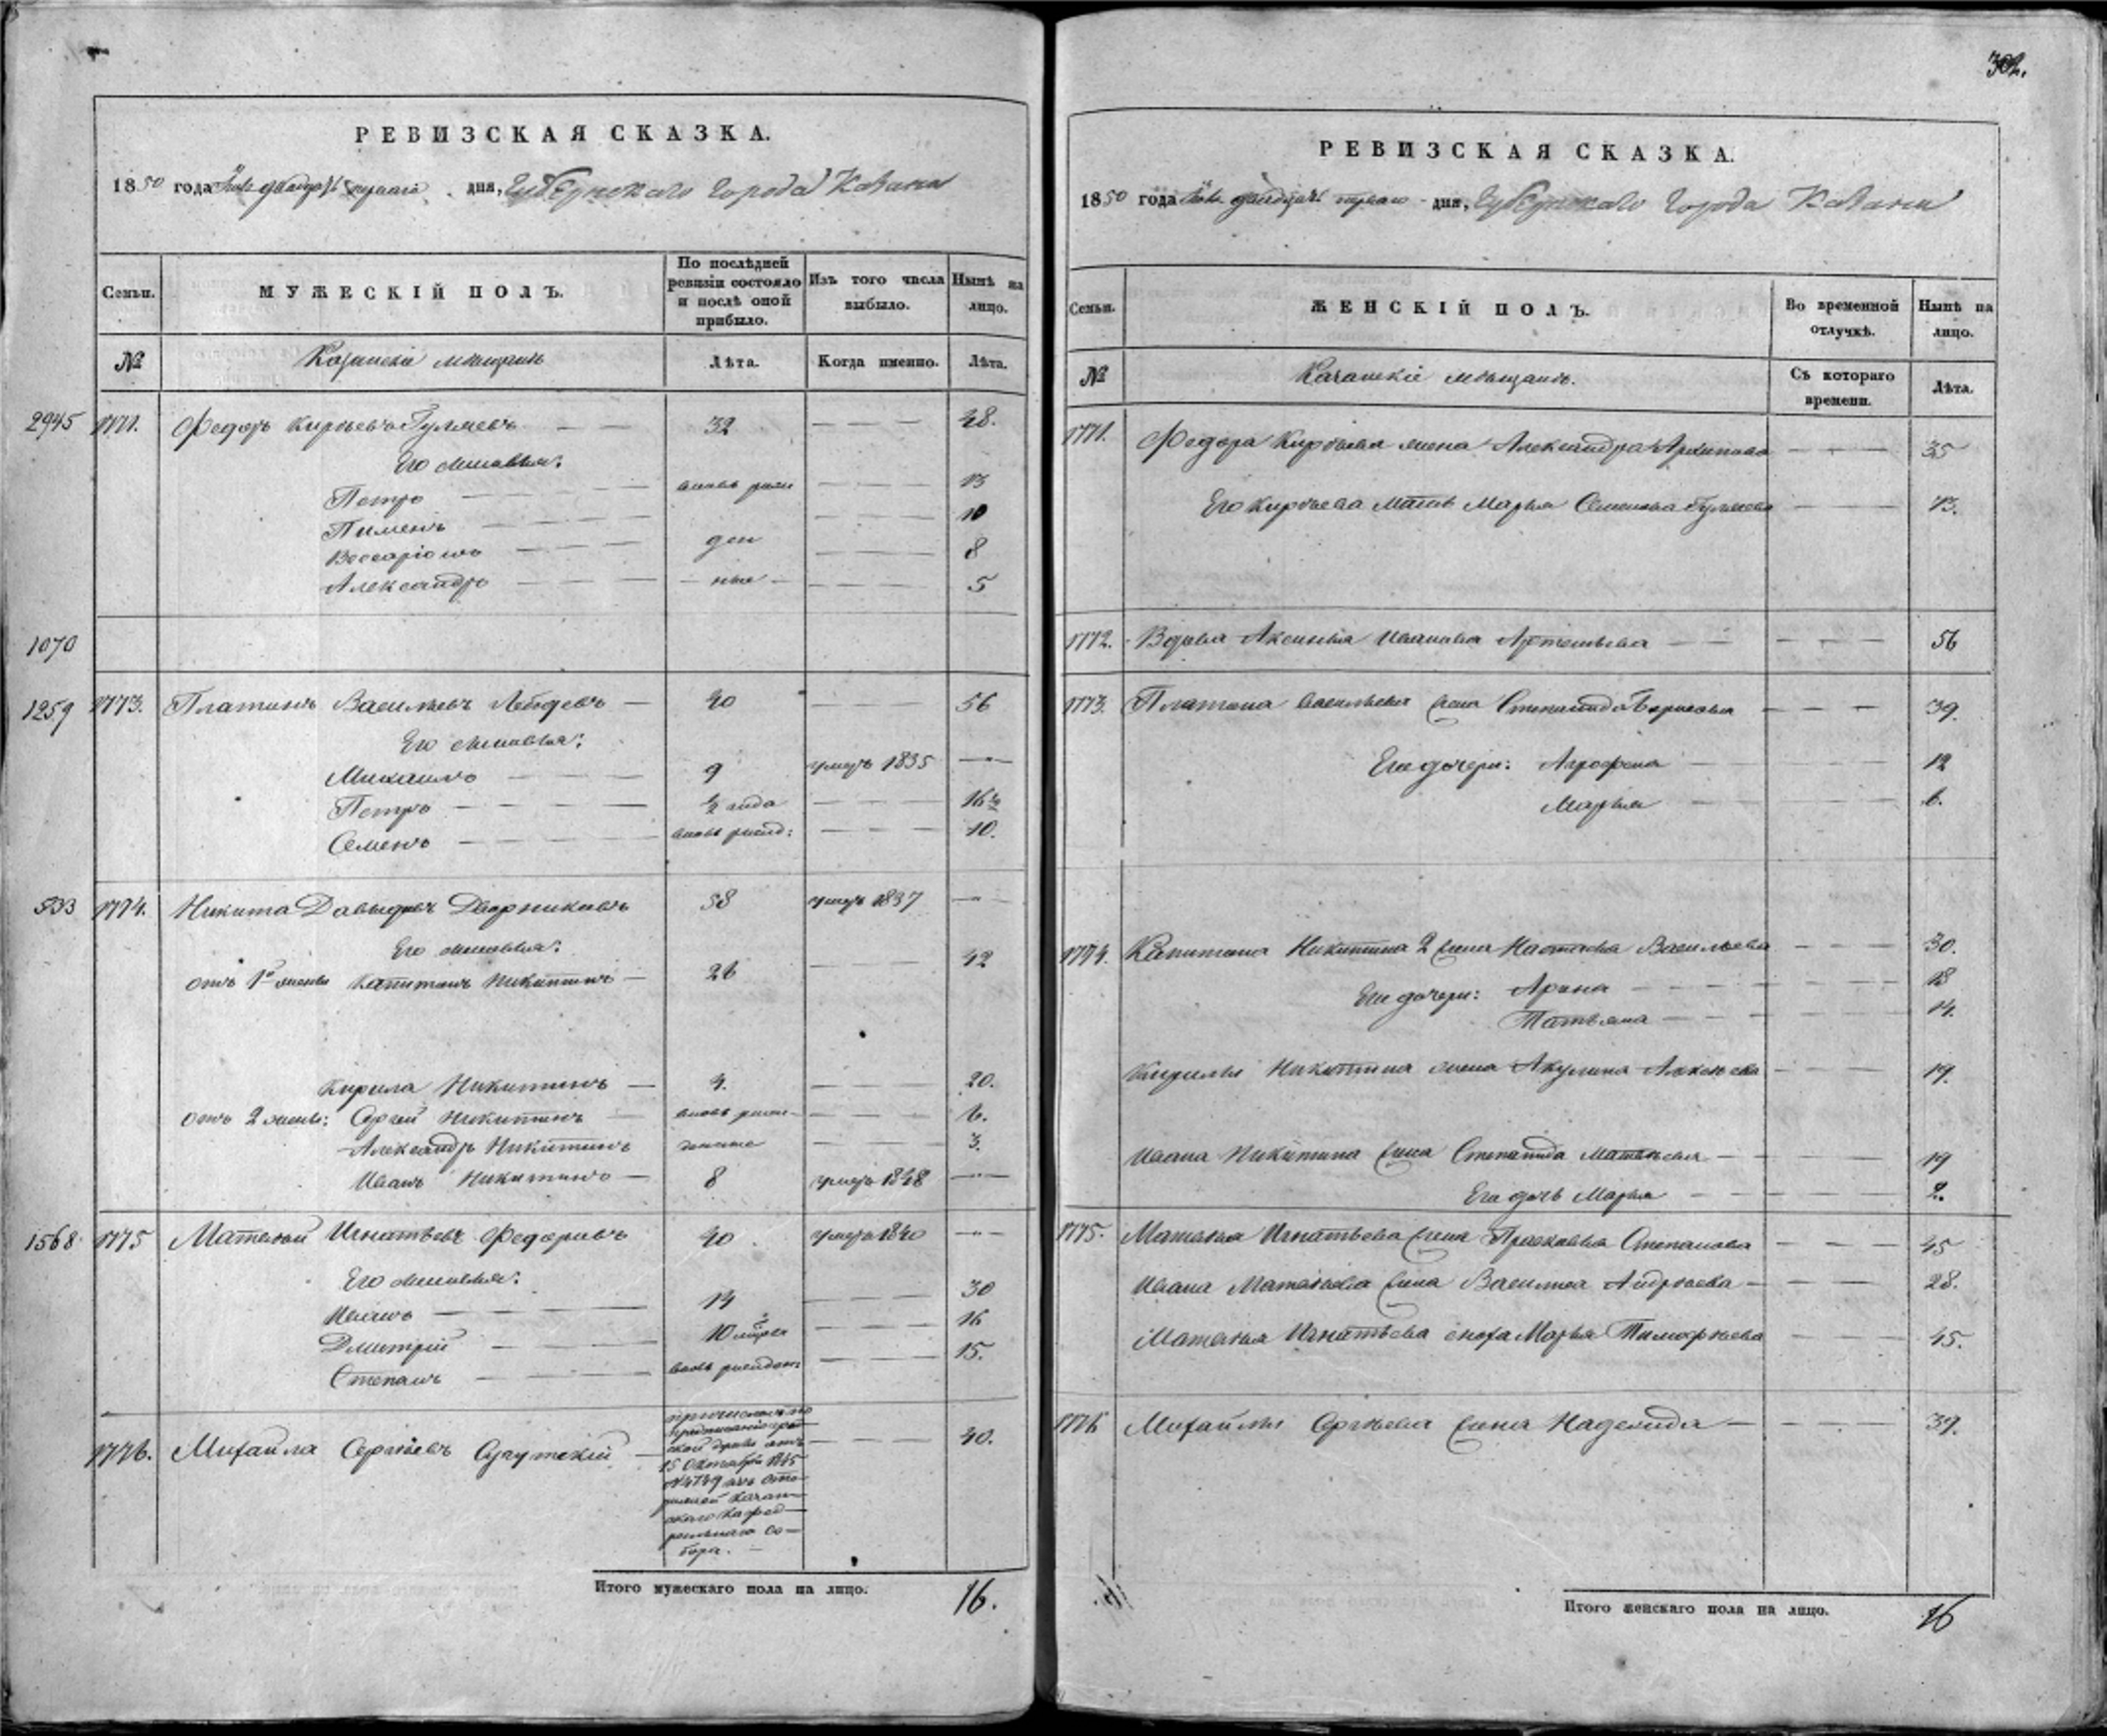 РЕВИЗСКАЯ СКАЗКА.
1850 года двадцать перваго дня, Губернскаго города Казани
Семьи. МУЖЕСКІЙ ПОЛЪ. По послѣдней ревизіи состояло и послѣ оной прибыло. Изъ того числа выбыло. Нынѣ на лицо.
№ Казанскіе мѣщане Лѣта. Когда именно. Лѣта.
2945 1771. Федоръ Кирѣевъ Гуляевъ 32 48.
Его сыновья:
Петръ вновь рож 13
Пименъ 10
Виссаріонъ ден 8
Александръ ные 5
1070
1259 1773. Платонъ Васильевъ Лебедевъ 40 56
Его сыновья:
Михаилъ 9 умеръ 1835
Петръ ½ года 16½
Семенъ вновь рожд: 10.
533 1774. Никита Давыдовъ Дворниковъ 58 умеръ 1837
Его сыновья:
отъ 1й жены Капитонъ Никитинъ 26 42
Кирила Никитинъ 4. 20.
отъ 2 жены: Сергѣй Никитинъ вновь рож 6.
Александръ Никитинъ денные 3.
Иванъ Никитинъ 8 умеръ 1848
1568 1775 Матвѣй Игнатьевъ Федоровъ 40 умеръ 1840
Его сыновья:
Иванъ 14 30
Дмитрій 10 16
Степанъ вновь рожден: 15.
1776. Михайла Сергѣевъ 40.
15 Октября 1845
№ 4749
Казан
скаго Кафед
ральнаго Со
бора.
Итого мужескаго пола на лицо. 16.
РЕВИЗСКАЯ СКАЗКА.
1850 года двадцать перваго дня, Губернскаго города Казани
Семьи. ЖЕНСКІЙ ПОЛЪ. Во временной отлучкѣ. Нынѣ на лицо.
№ Казанскіе мѣщане. Съ котораго времени. Лѣта.
1771. Федора Кирѣева жена Александра Архипова 35
Его Кирѣева мать Марья Семенова Гуляева 73.
1772. Вдова Аксинья Иванова Артемьева 56
1773. Платона Васильева жена Степанида Борисова 39.
Его дочери: Агрофена 12
Марья 6.
1774. Капитона Никитина 2 жена Настасья Васильева 30.
Его дочери: Арина 18
Татьяна 14.
Кирилы Никитина жена Акулина Алексѣева 19.
Ивана Никитина жена Степанида Матвѣева 19
Его дочь Марья 2.
1775. Матвѣя Игнатьева жена Прасковья Степанова 45
Ивана Матвѣева жена Василиса Андреева 28.
Матвѣя Игнатьева сноха Марья Тимофѣева 45.
1776 Михайлы Сергѣева жена Надежда 39.
Итого женскаго пола на лицо. 16